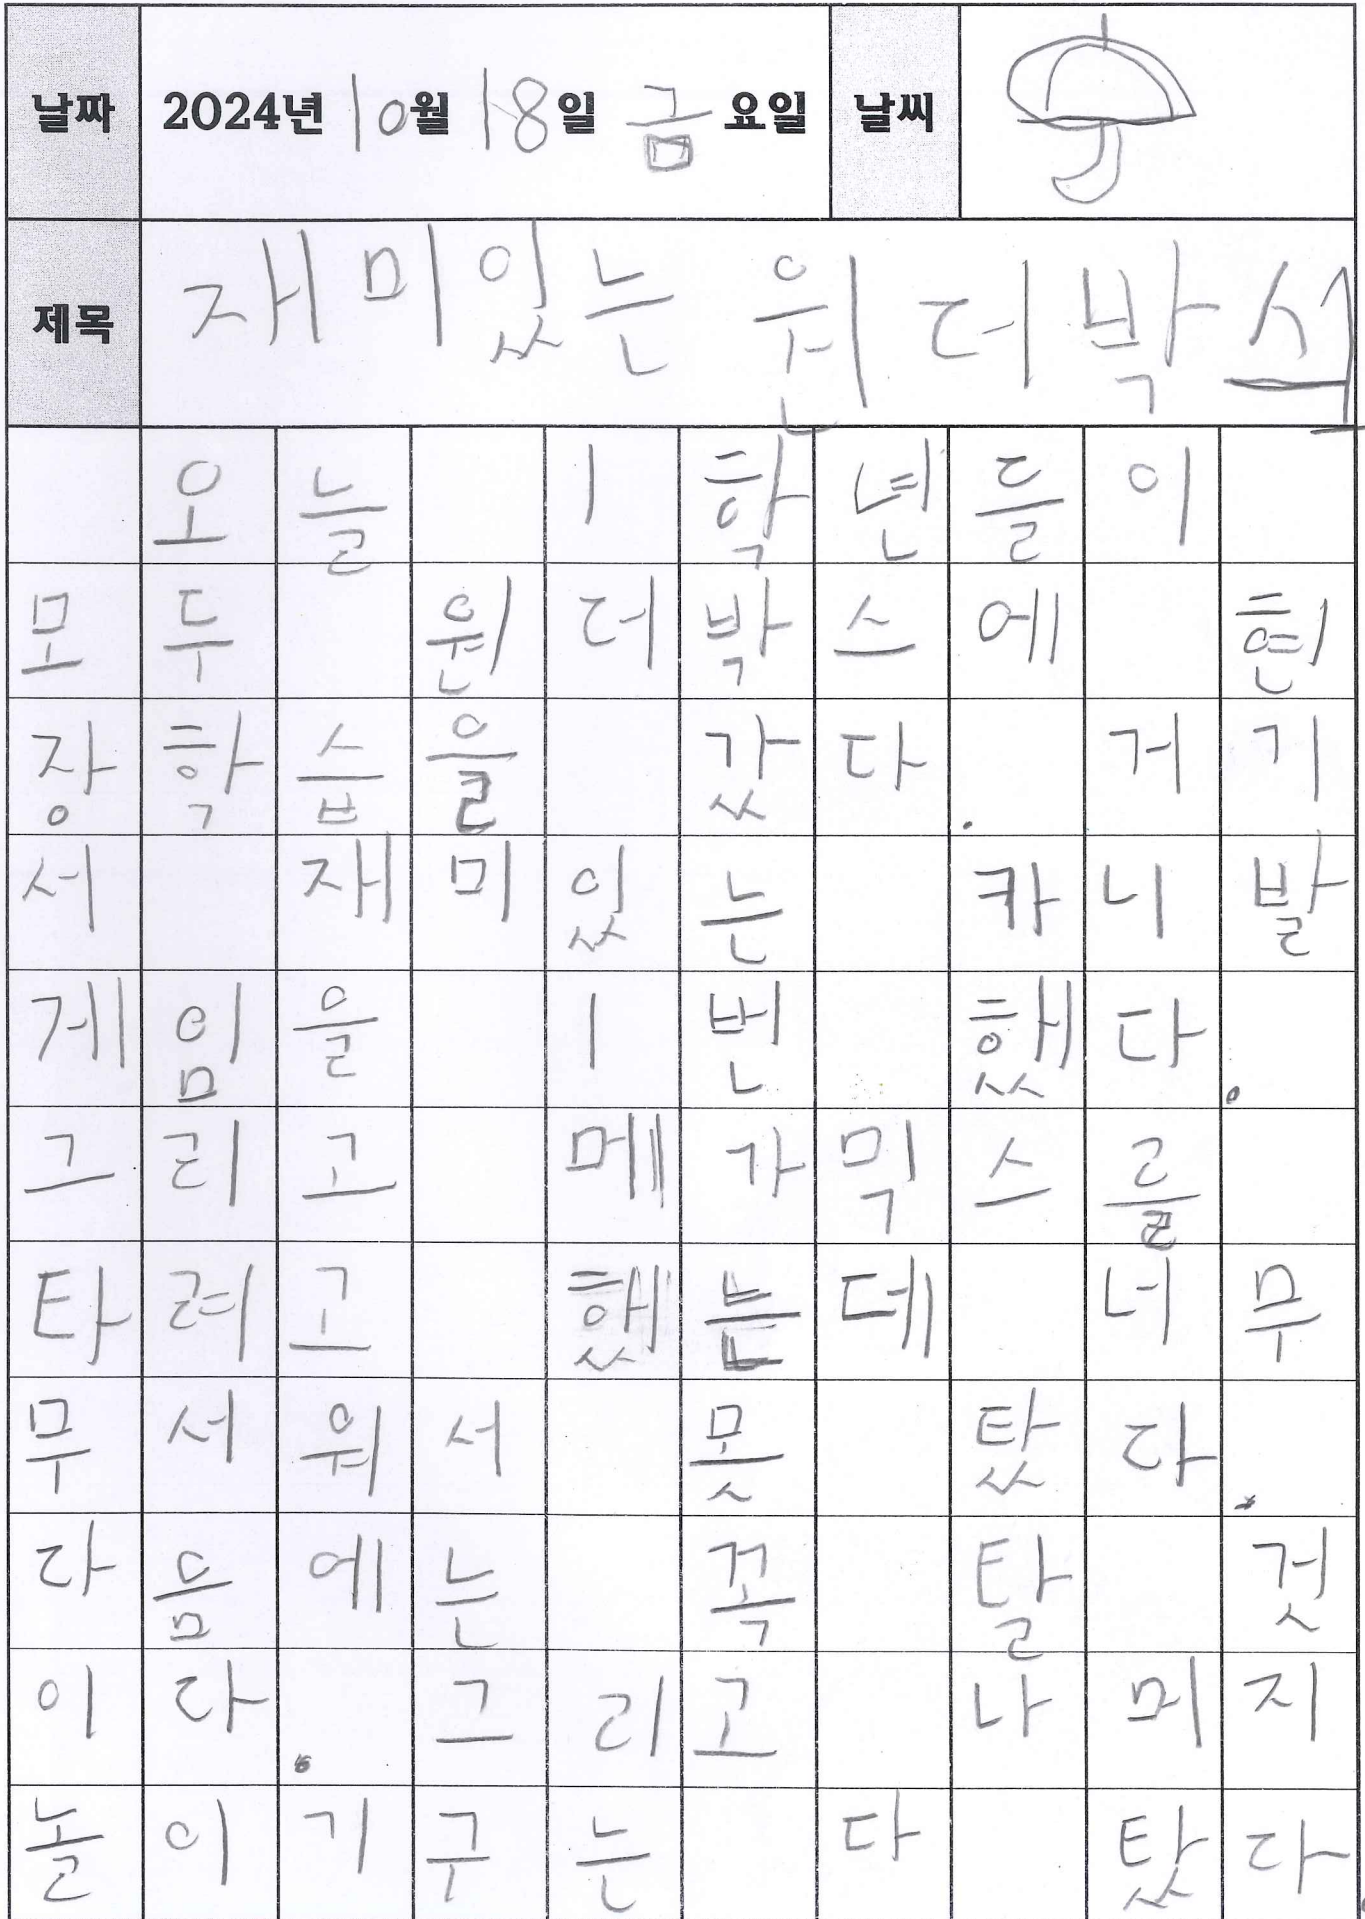 날짜 2024년 10월 18일 금요일 날씨
제목 재미있는 원더박스
오늘 1학년들이
모두 원더박스에 현
장학습을 갔다. 거기
서 재미있는 카니발
게임을 1번 했다.
그리고 메가믹스를
타려고 했는데 너무
무서워서 못 탔다.
다음에는 꼭 탈 것
이다. 그리고 나머지
놀이기구는 다 탔다.